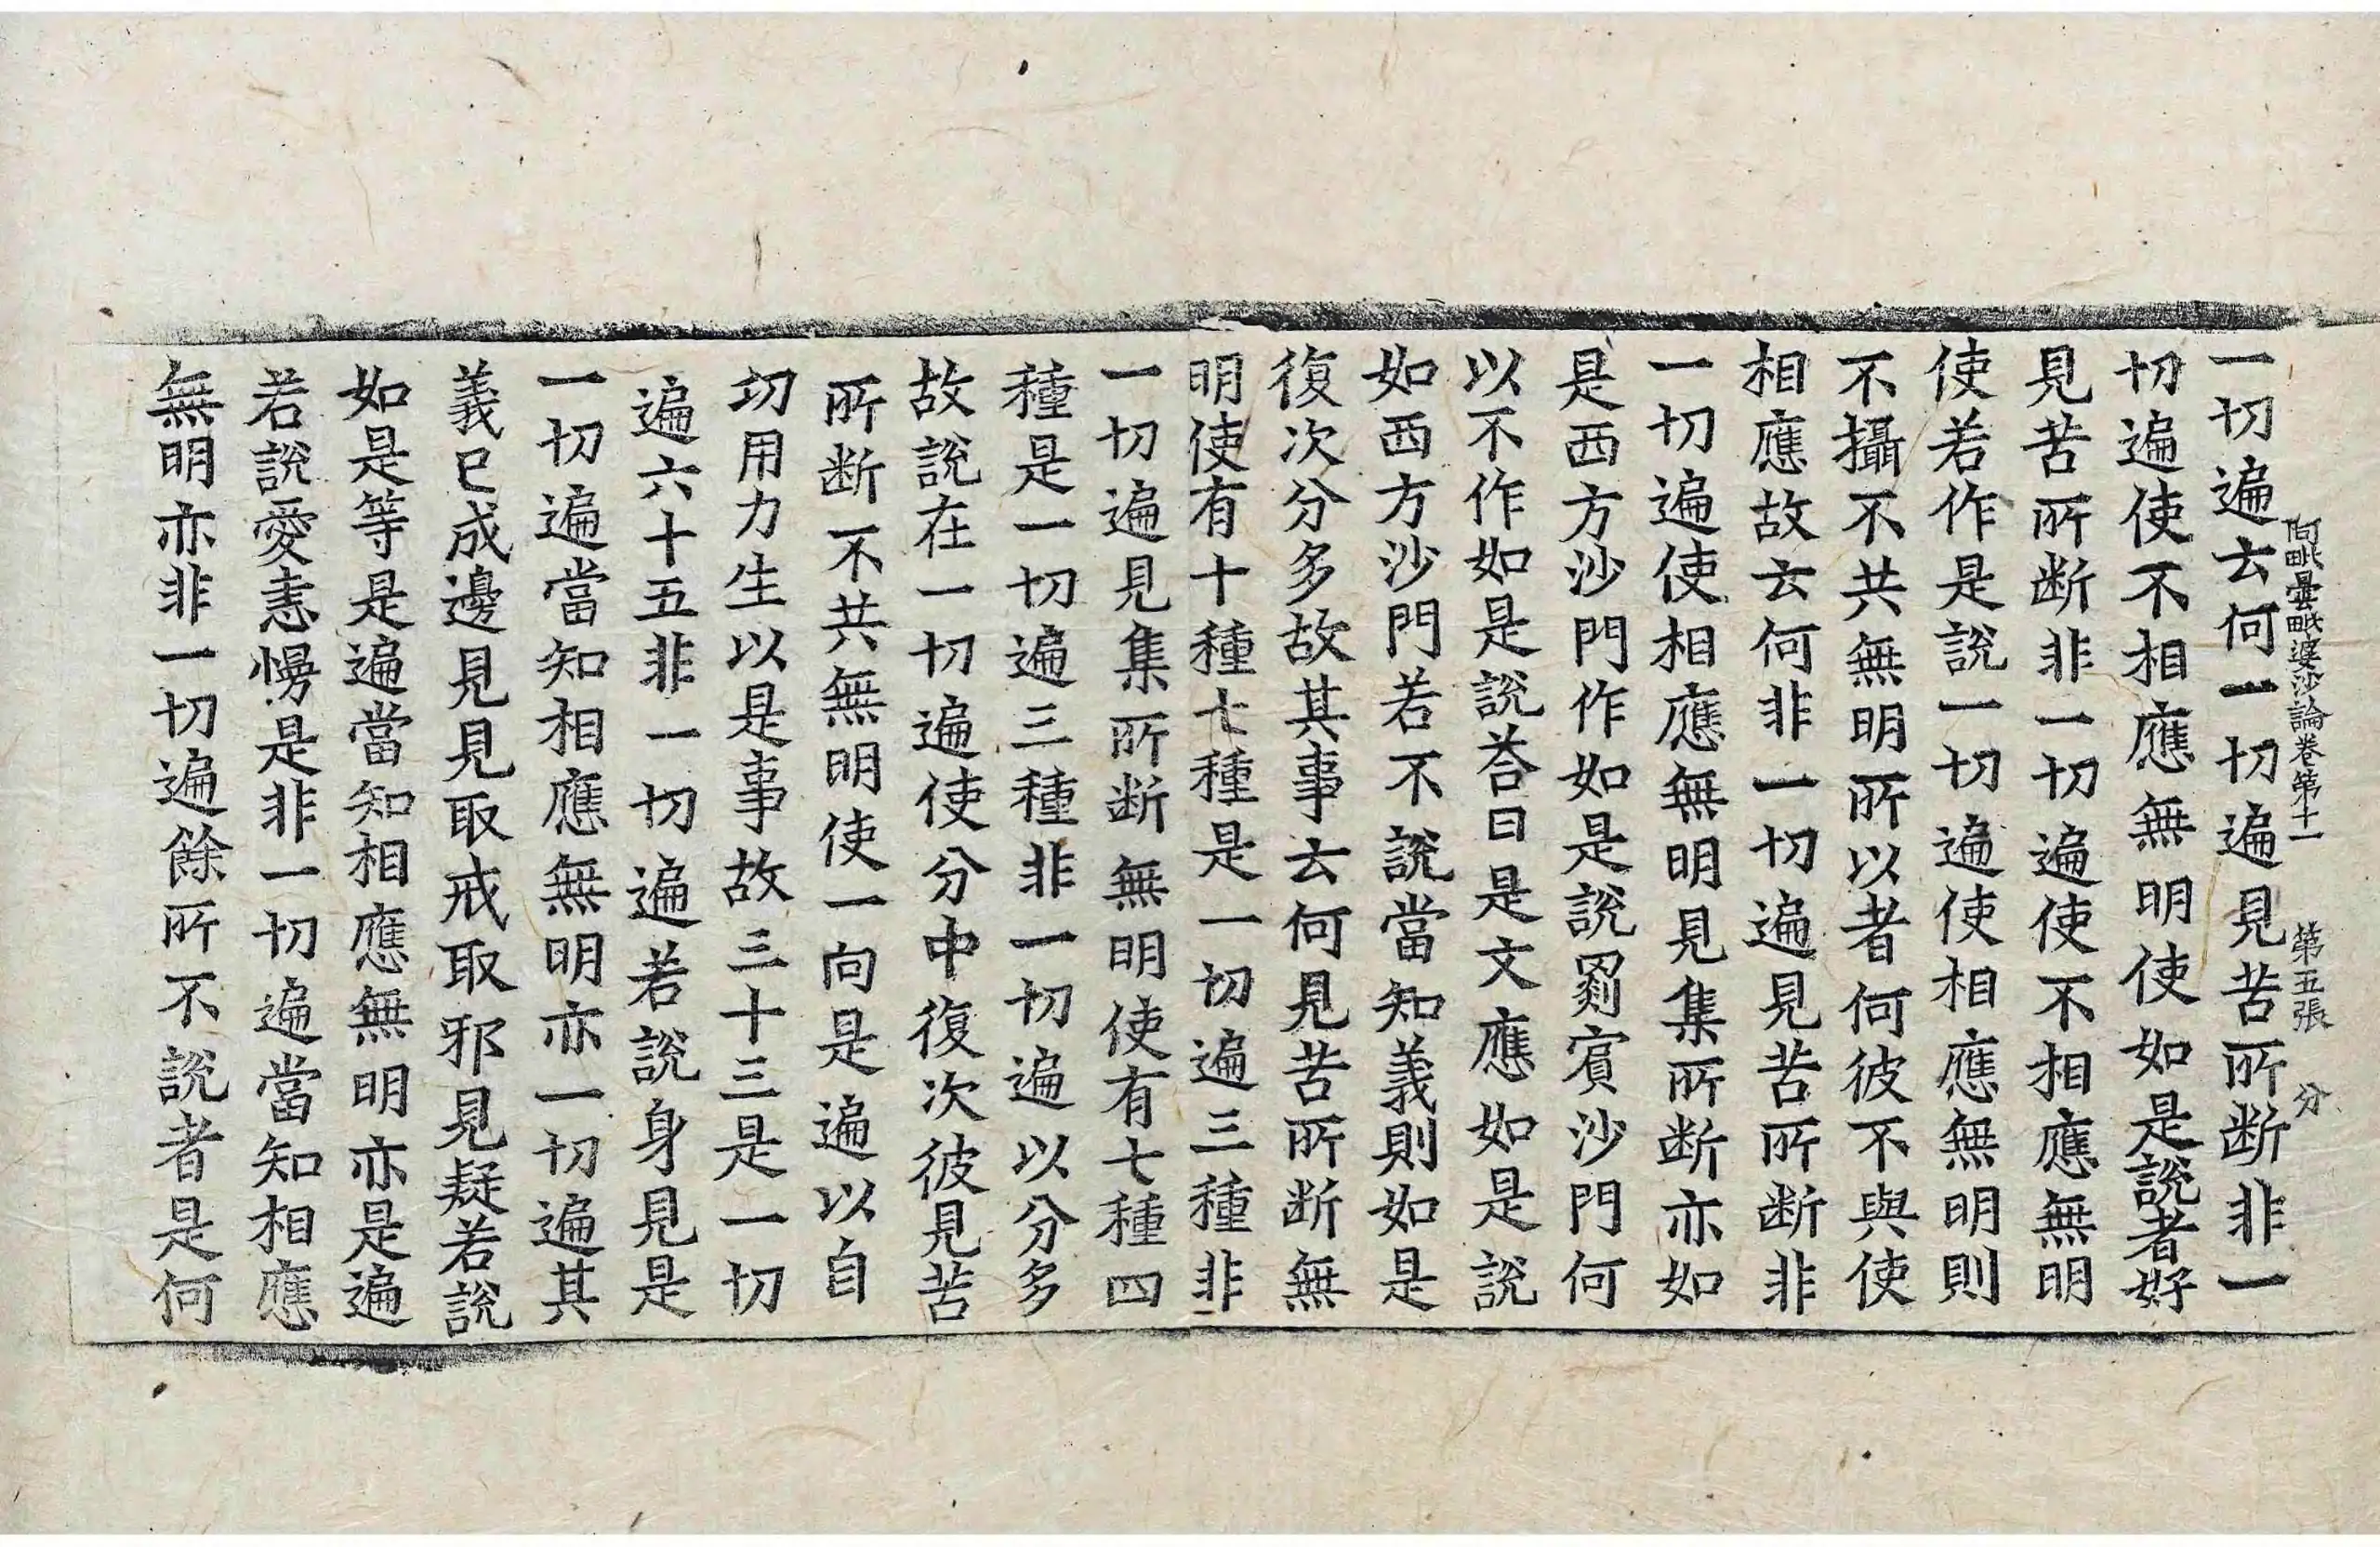 阿毗曇毗婆沙論卷第十一 第五張 分
一切遍云何一切遍見苦所断非一
切遍使不相應無明使如是說者好
見苦所断非一切遍使不相應無明
使若作是說一切遍使相應無明則
不攝不共無明所以者何彼不與使
相應故云何非一切遍見苦所断非
一切遍使相應無明見集所断亦如
是西方沙門作如是說罽賓沙門何
以不作如是說荅曰是文應如是說
如西方沙門若不說當知義則如是
復次分多故其事云何見苦所断無
明使有十種七種是一切遍三種非
一切遍見集所断無明使有七種四
種是一切遍三種非一切遍以分多
故說在一切遍使分中復次彼見苦
所断不共無明使一向是遍以自
切用力生以是事故三十三是一切
遍六十五非一切遍若說身見是
一切遍當知相應無明亦一切遍其
義已成邊見見取戒取邪見疑若說
如是等是遍當知相應無明亦是遍
若說愛恚慢是非一切遍當知相應
無明亦非一切遍餘所不說者是何